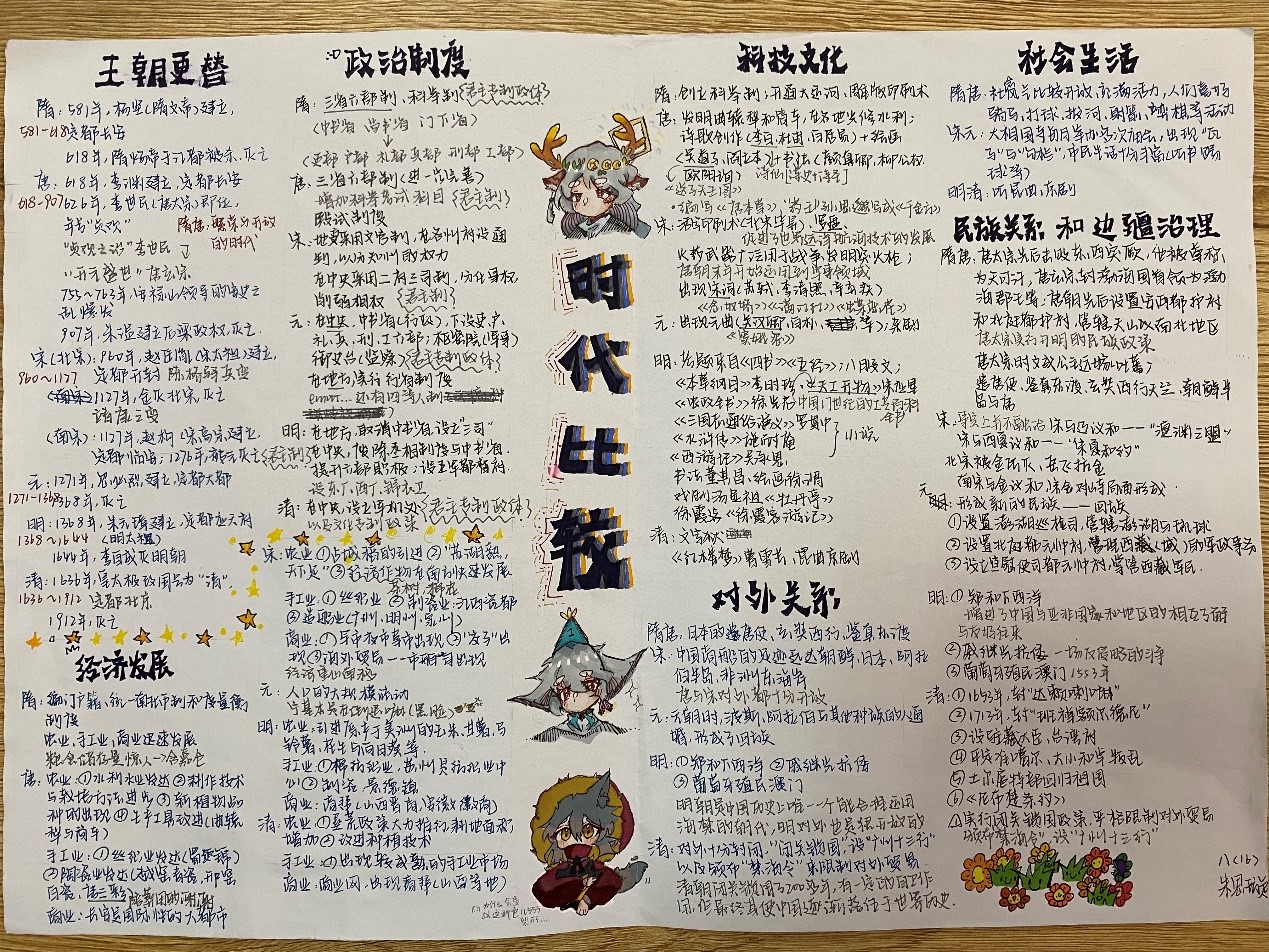 王朝更替
隋：581年，杨坚(隋文帝)建立，
581-618定都长安
618年，隋炀帝于江都被杀，灭亡
唐：618年，李渊建立，定都长安
618-907 626年，李世民(唐太宗)即位，
年号"贞观"
隋唐：繁荣与开放的时代
"贞观之治"李世民
"开元盛世"唐玄宗
755~763年，安禄山领导的安史之
乱爆发
907年，朱温建立后梁政权，灭亡
宋(北宋)：960年，赵匡胤(宋太祖)建立，
960~1127 定都开封 陈桥驿兵变
1127年，金灭北宋，灭亡
靖康之变
(南宋)：1127年，赵构(宋高宗)建立，
定都临安；1276年，都元灭亡
元：1271年，忽必烈建立，定都大都
1271-1368 1368年，灭亡
明：1368年，朱元璋建立，定都应天府
1368~1644 (明太祖)
1644年，李自成灭明朝
清：1636年，皇太极改国号为"清"，
1636~1912 定都北京
1912年，灭亡
经济发展
隋：编订户籍、统一南北币制和度量衡
制度
农业、手工业、商业迅速发展
粮食储存量惊人→含嘉仓
唐：农业：①水利水业发达 ②耕作技术
④生产工具改进(曲辕
犁与筒车)
手工业：①丝织业发达(蜀锦)
②陶瓷业发达(越窑青瓷，邢窑
白瓷，唐三彩)
商业：长安是国际性的大都市
政治制度
隋：三省六部制、科举制{君主专制政体}
(中书省 尚书省 门下省)
(吏部 户部 礼部 兵部 刑部 工部)
唐：三省六部制(进一步完善)
增加科举考试科目
殿试制度
在中央采用二府三司制，分化事权，
削弱相权
元：在中央，中书省(行政)，下设吏、户、
礼、兵、刑、工六部；枢密院(军事)
御史台(监察){君主专制政体}
在地方实行行省制度
明：在地方，取消中书省，设立"三司"
在中央，废除丞相制度与中书省，
提升六部职权；设五军都督府
设东厂、西厂、锦衣卫
清：在中央，设立军机处{君主专制政体}
以及文化专制政策
宋：农业 ①占城稻的引进 ②"苏湖熟，
天下足" ③经济作物在南方快速发展
茶树、棉花
手工业：①丝织业 ②制瓷业：江西瓷都
③造船业(广州、明州、泉州)
商业：①早市夜市等市出现 ②"交子"出
现 ③海外贸易——市舶司出现
经济重心南移
元：人口的大规模流动
明：农业：引进原产于美洲的玉米、甘薯、马
铃薯、花生与向日葵等
手工业：①棉纺织业，苏州是丝织业中
心 ②制瓷：景德镇
商业：商帮(山西晋商、安徽徽商)
清：农业：①垦荒政策大力推行，耕地面积
增加 ②改进种植技术
手工业：①出现较成熟的手工业市场
商业：商业网，出现商帮(山西等地)
时代比较
科技文化
隋：创立科举制；开通大运河，雕版印刷术
唐：发明曲辕犁和筒车，在各地兴修水利；
诗歌创作(李白、杜甫、白居易)+绘画
(吴道子、阎立本)+书法(颜真卿、柳公权、
欧阳询)
《送子天王图》
宋：活字印刷术(北宋毕昇)、罗盘，
促进了世界远洋航海技术的发展
火药武器广泛用于战争，发明突火枪；
唐朝末年开始运用到军事领域
出现宋词(苏轼、李清照、辛弃疾)
元：出现元曲(关汉卿、白朴、等)，杂剧
《窦娥冤》
明：考题来自《四书》《五经》；八股文；
《本草纲目》李时珍，《天工开物》宋应星
《农政全书》徐光启 中国17世纪的工艺百科
全书
《三国志通俗演义》罗贯中
《水浒传》施耐庵
《西游记》吴承恩
小说
书法董其昌、绘画徐渭
戏剧汤显祖《牡丹亭》
徐霞客《徐霞客游记》
清：文字狱
《红楼梦》曹雪芹，昆曲京剧
对外关系
隋唐：日本的遣唐使，玄奘西行，鉴真东渡
宋：中国商船的足迹远达朝鲜、日本、阿拉
伯半岛、非洲东海岸
唐与宋对外都十分开放
元：元朝时，波斯、阿拉伯与其他种族的人通
婚，形成了回族
明：①郑和下西洋 ②戚继光抗倭
③葡萄牙殖民澳门
清：对外十分封闭，"闭关锁国"，设"广州十三行"
以及颁布"禁海令"来限制对外贸易
清朝闭关锁国了200多年，有一定的自卫作
用，但最终其使中国逐渐落伍于世界历史。
社会生活
隋唐：社会风气比较开放，充满活力，人们喜好
骑马、打球、拔河、射箭、下棋等活动
宋元：大相国寺每月举办多次加会，出现"瓦
子"与"勾栏"，市民生活
明清：听昆曲、京剧
民族关系 和 边疆治理
隋唐：唐太宗先后击败东、西突厥，他被尊称
为天可汗，唐玄宗，封粟末靺鞨首领为渤
海郡王；唐朝先后设置安西都护府
和北庭都护府，管辖天山以南北地区
唐太宗实行开明的民族政策
唐太宗时文成公主远嫁吐蕃；
遣唐使、鉴真东渡、玄奘西行天竺、朝鲜半
岛与唐
宋与辽议和——"澶渊之盟"
宋与西夏议和——"宋夏和约"
北宋被金所灭
南宋与金议和，宋金对峙局面形成
元：形成新的民族——回族
①设置澎湖巡检司，管辖澎湖与琉球
②设置北庭都元帅府，管理西域的军政事务
③设立宣慰使司都元帅府，掌管西藏军民
明：①郑和下西洋
增进了中国与亚非国家和地区的相互了解
与友好往来
②戚继光抗倭 一场反侵略的斗争
③葡萄牙殖民澳门 1553年
清：①1653年，封"达赖喇嘛"
②1713年，封"班禅额尔德尼"
③设驻藏大臣，台湾府
④平定准噶尔、大小和卓叛乱
⑤土尔扈特部回归祖国
⑥《尼布楚条约》
△实行闭关锁国政策，严格限制对外贸易
颁布"禁海令"，设"广州十三行"
八(16)